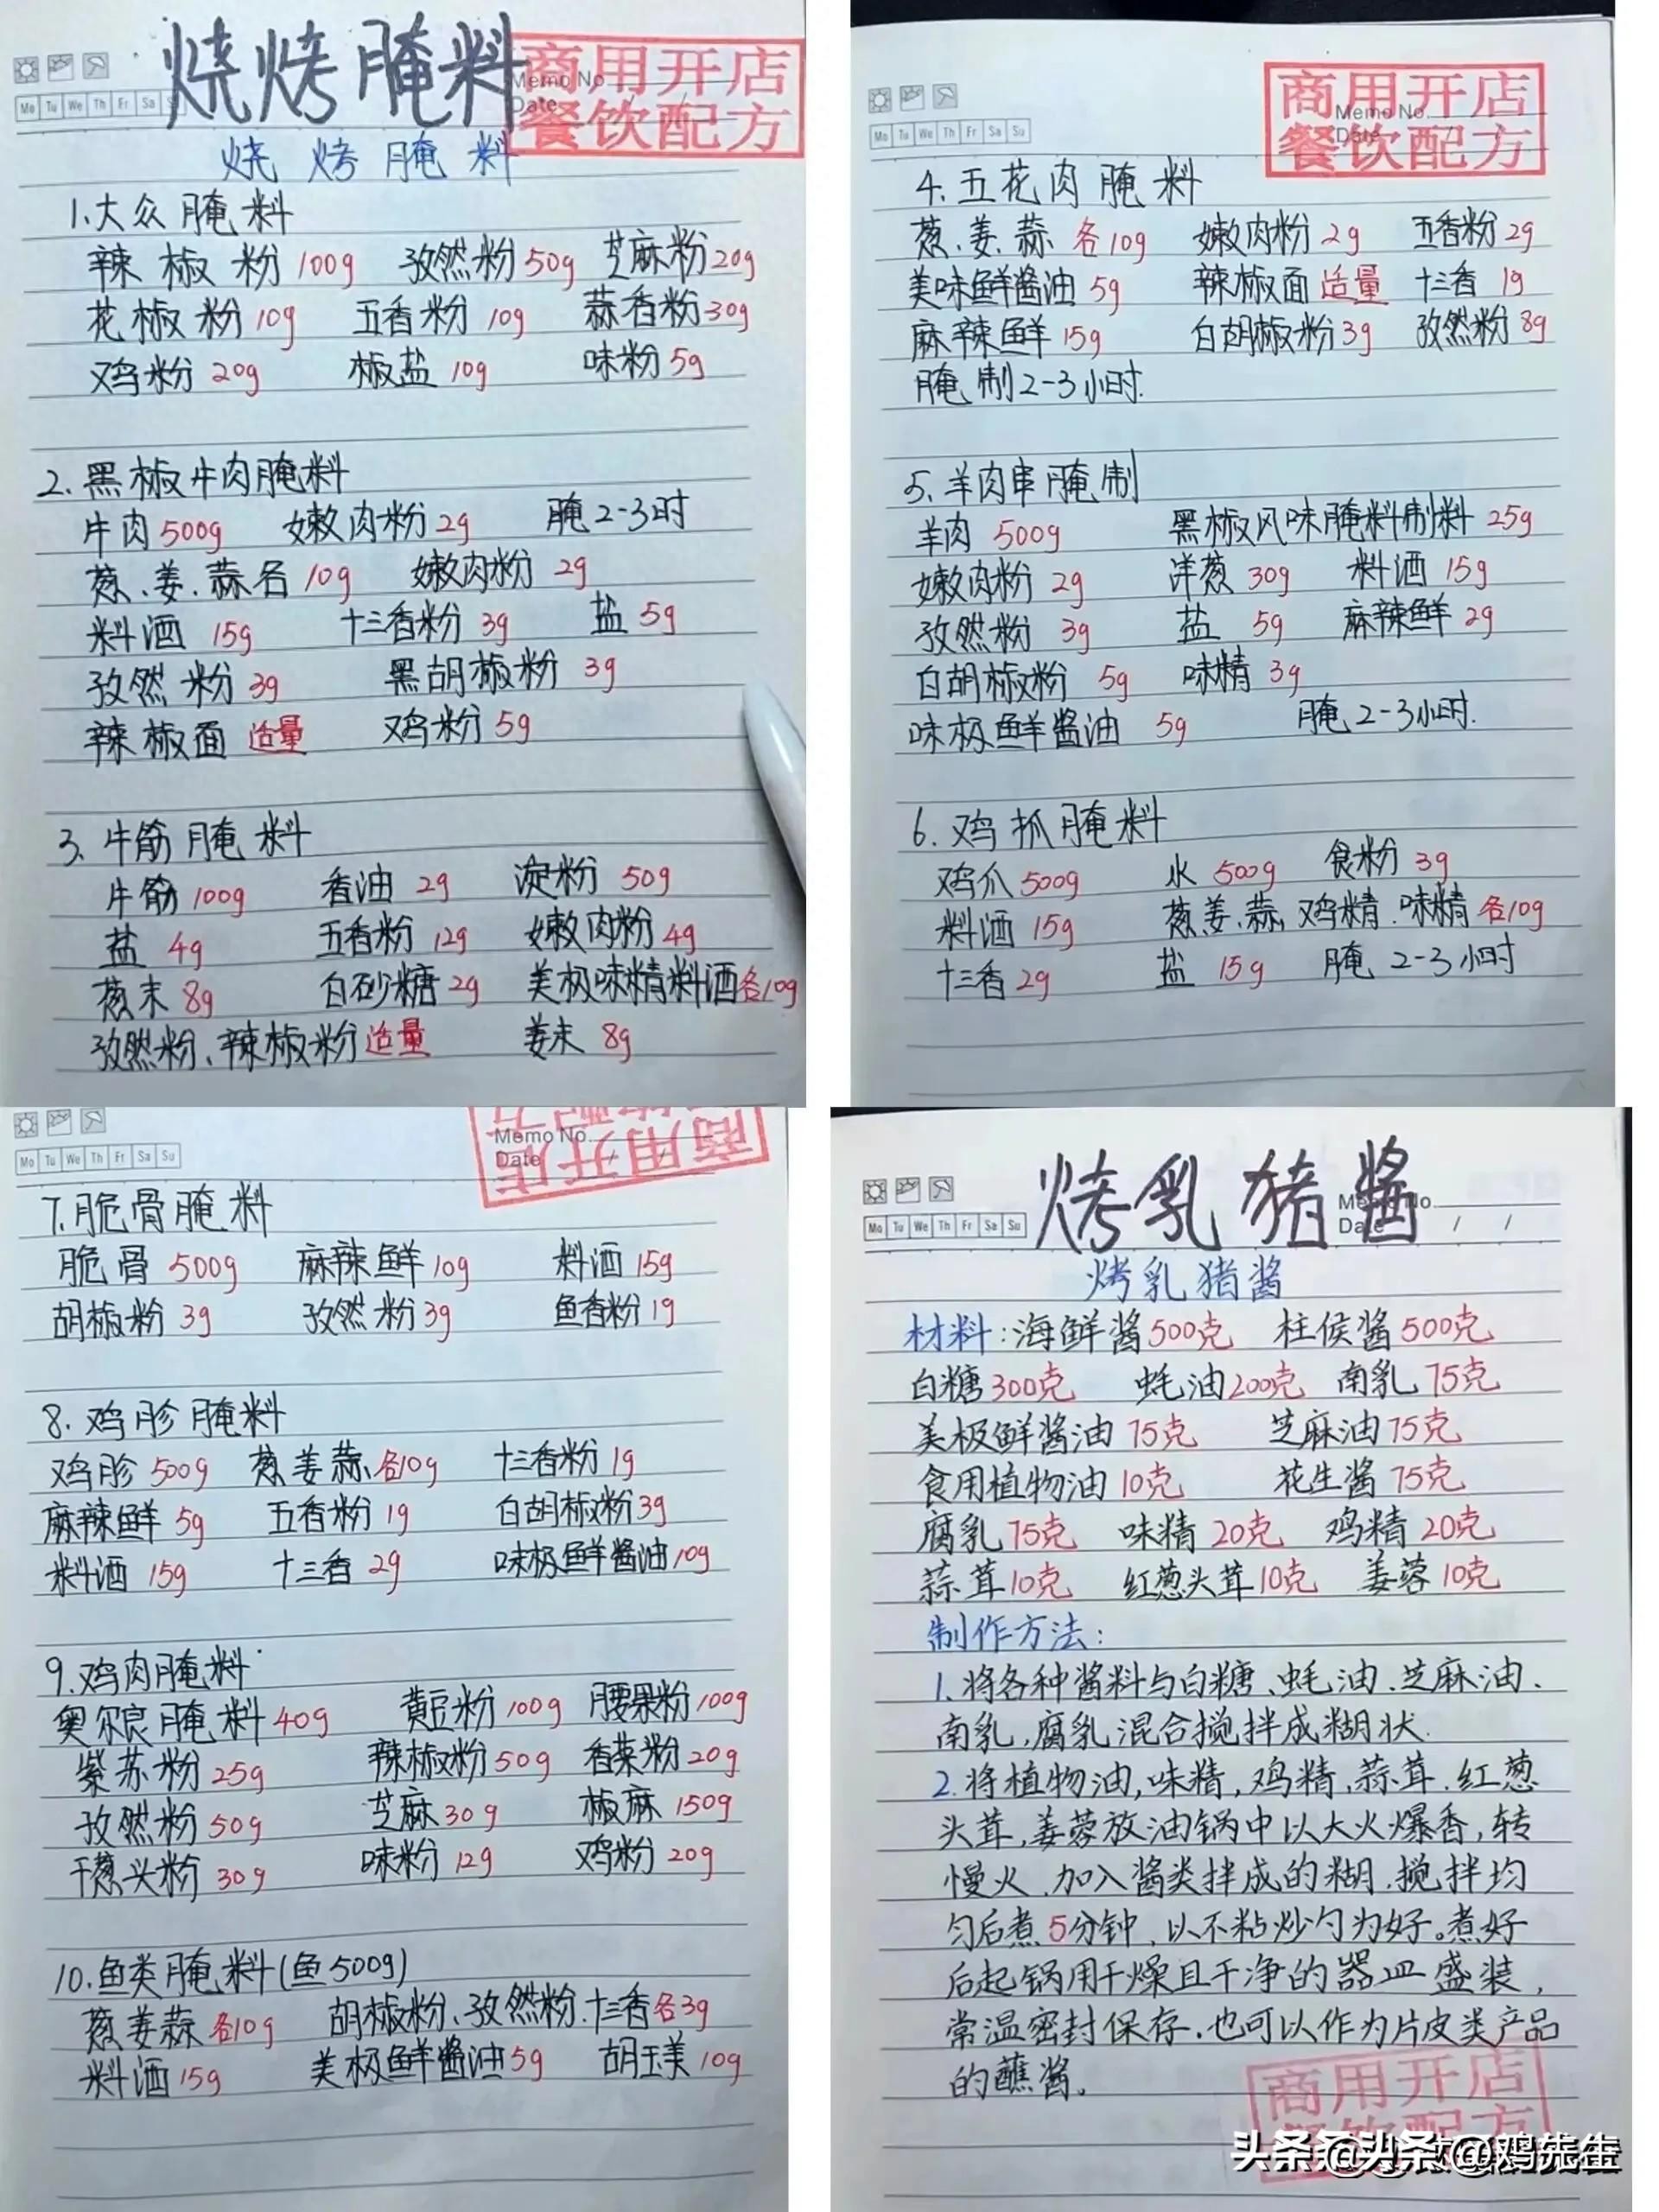 烧烤腌料
商用开店
餐饮配方
Memo No.
Date / /
Mo Tu We Th Fr Sa
烧烤腌料
1.大众腌料
辣椒粉100g 孜然粉50g 芝麻粉20g
花椒粉10g 五香粉10g 蒜香粉30g
鸡粉20g 椒盐10g 味粉5g
2.黑椒牛肉腌料
牛肉500g 嫩肉粉2g 腌2-3时
葱、姜、蒜各10g 嫩肉粉2g
料酒15g 十三香粉3g 盐5g
孜然粉3g 黑胡椒粉3g
辣椒面适量 鸡粉5g
3.牛筋腌料
牛筋100g 香油2g 淀粉50g
盐4g 五香粉12g 嫩肉粉4g
葱末8g 白砂糖2g 美极味精料酒各10g
孜然粉、辣椒粉适量 姜末8g
商用开店
餐饮配方
Memo No.
Date / /
Mo Tu We Th Fr Sa Su
4.五花肉腌料
葱、姜、蒜各10g 嫩肉粉2g 五香粉2g
美味鲜酱油5g 辣椒面适量 十三香1g
麻辣鲜15g 白胡椒粉3g 孜然粉8g
腌制2-3小时.
5.羊肉串腌制
羊肉500g 黑椒风味腌料制料25g
嫩肉粉2g 洋葱30g 料酒15g
孜然粉3g 盐5g 麻辣鲜2g
白胡椒粉5g 味精3g
味极鲜酱油5g 腌2-3小时.
6.鸡抓腌料
鸡爪500g 水500g 食粉3g
料酒15g 葱姜、蒜,鸡精.味精各10g
十三香2g 盐15g 腌2-3小时
商用开店
Memo No.
Date / /
Mo Tu We Th Fr Sa Su
7.脆骨腌料
脆骨500g 麻辣鲜10g 料酒15g
胡椒粉3g 孜然粉3g 鱼香粉1g
8.鸡胗腌料
鸡胗500g 葱姜蒜各10g 十三香粉1g
麻辣鲜5g 五香粉1g 白胡椒粉3g
料酒15g 十三香2g 味极鲜酱油10g
9.鸡肉腌料
奥尔良腌料40g 黄豆粉100g 腰果粉100g
紫苏粉25g 辣椒粉50g 香菜粉20g
孜然粉50g 芝麻30g 椒麻150g
干葱头粉30g 味粉12g 鸡粉20g
10.鱼类腌料(鱼500g)
葱姜蒜各10g 胡椒粉、孜然粉.十三香各3g
料酒15g 美极鲜酱油5g 胡玉美10g
烤乳猪酱
Memo No.
Date / /
Mo Tu We Th Fr Sa Su
烤乳猪酱
材料:海鲜酱500克 柱侯酱500克
白糖300克 蚝油200克 南乳75克
美极鲜酱油75克 芝麻油75克
食用植物油10克 花生酱75克
腐乳75克 味精20克 鸡精20克
蒜茸10克 红葱头茸10克 姜蓉10克
制作方法:
1.将各种酱料与白糖、蚝油、芝麻油、
南乳,腐乳混合搅拌成糊状.
2.将植物油,味精,鸡精,蒜茸.红葱
头茸,姜蓉放油锅中以大火爆香,转
慢火、加入酱类拌成的糊.搅拌均
匀后煮5分钟、以不粘炒勺为好。煮好
后起锅用干燥且干净的器皿盛装,
常温密封保存.也可以作为片皮类产品
的蘸酱.
商用开店
餐饮配方
头条 @鸡先生